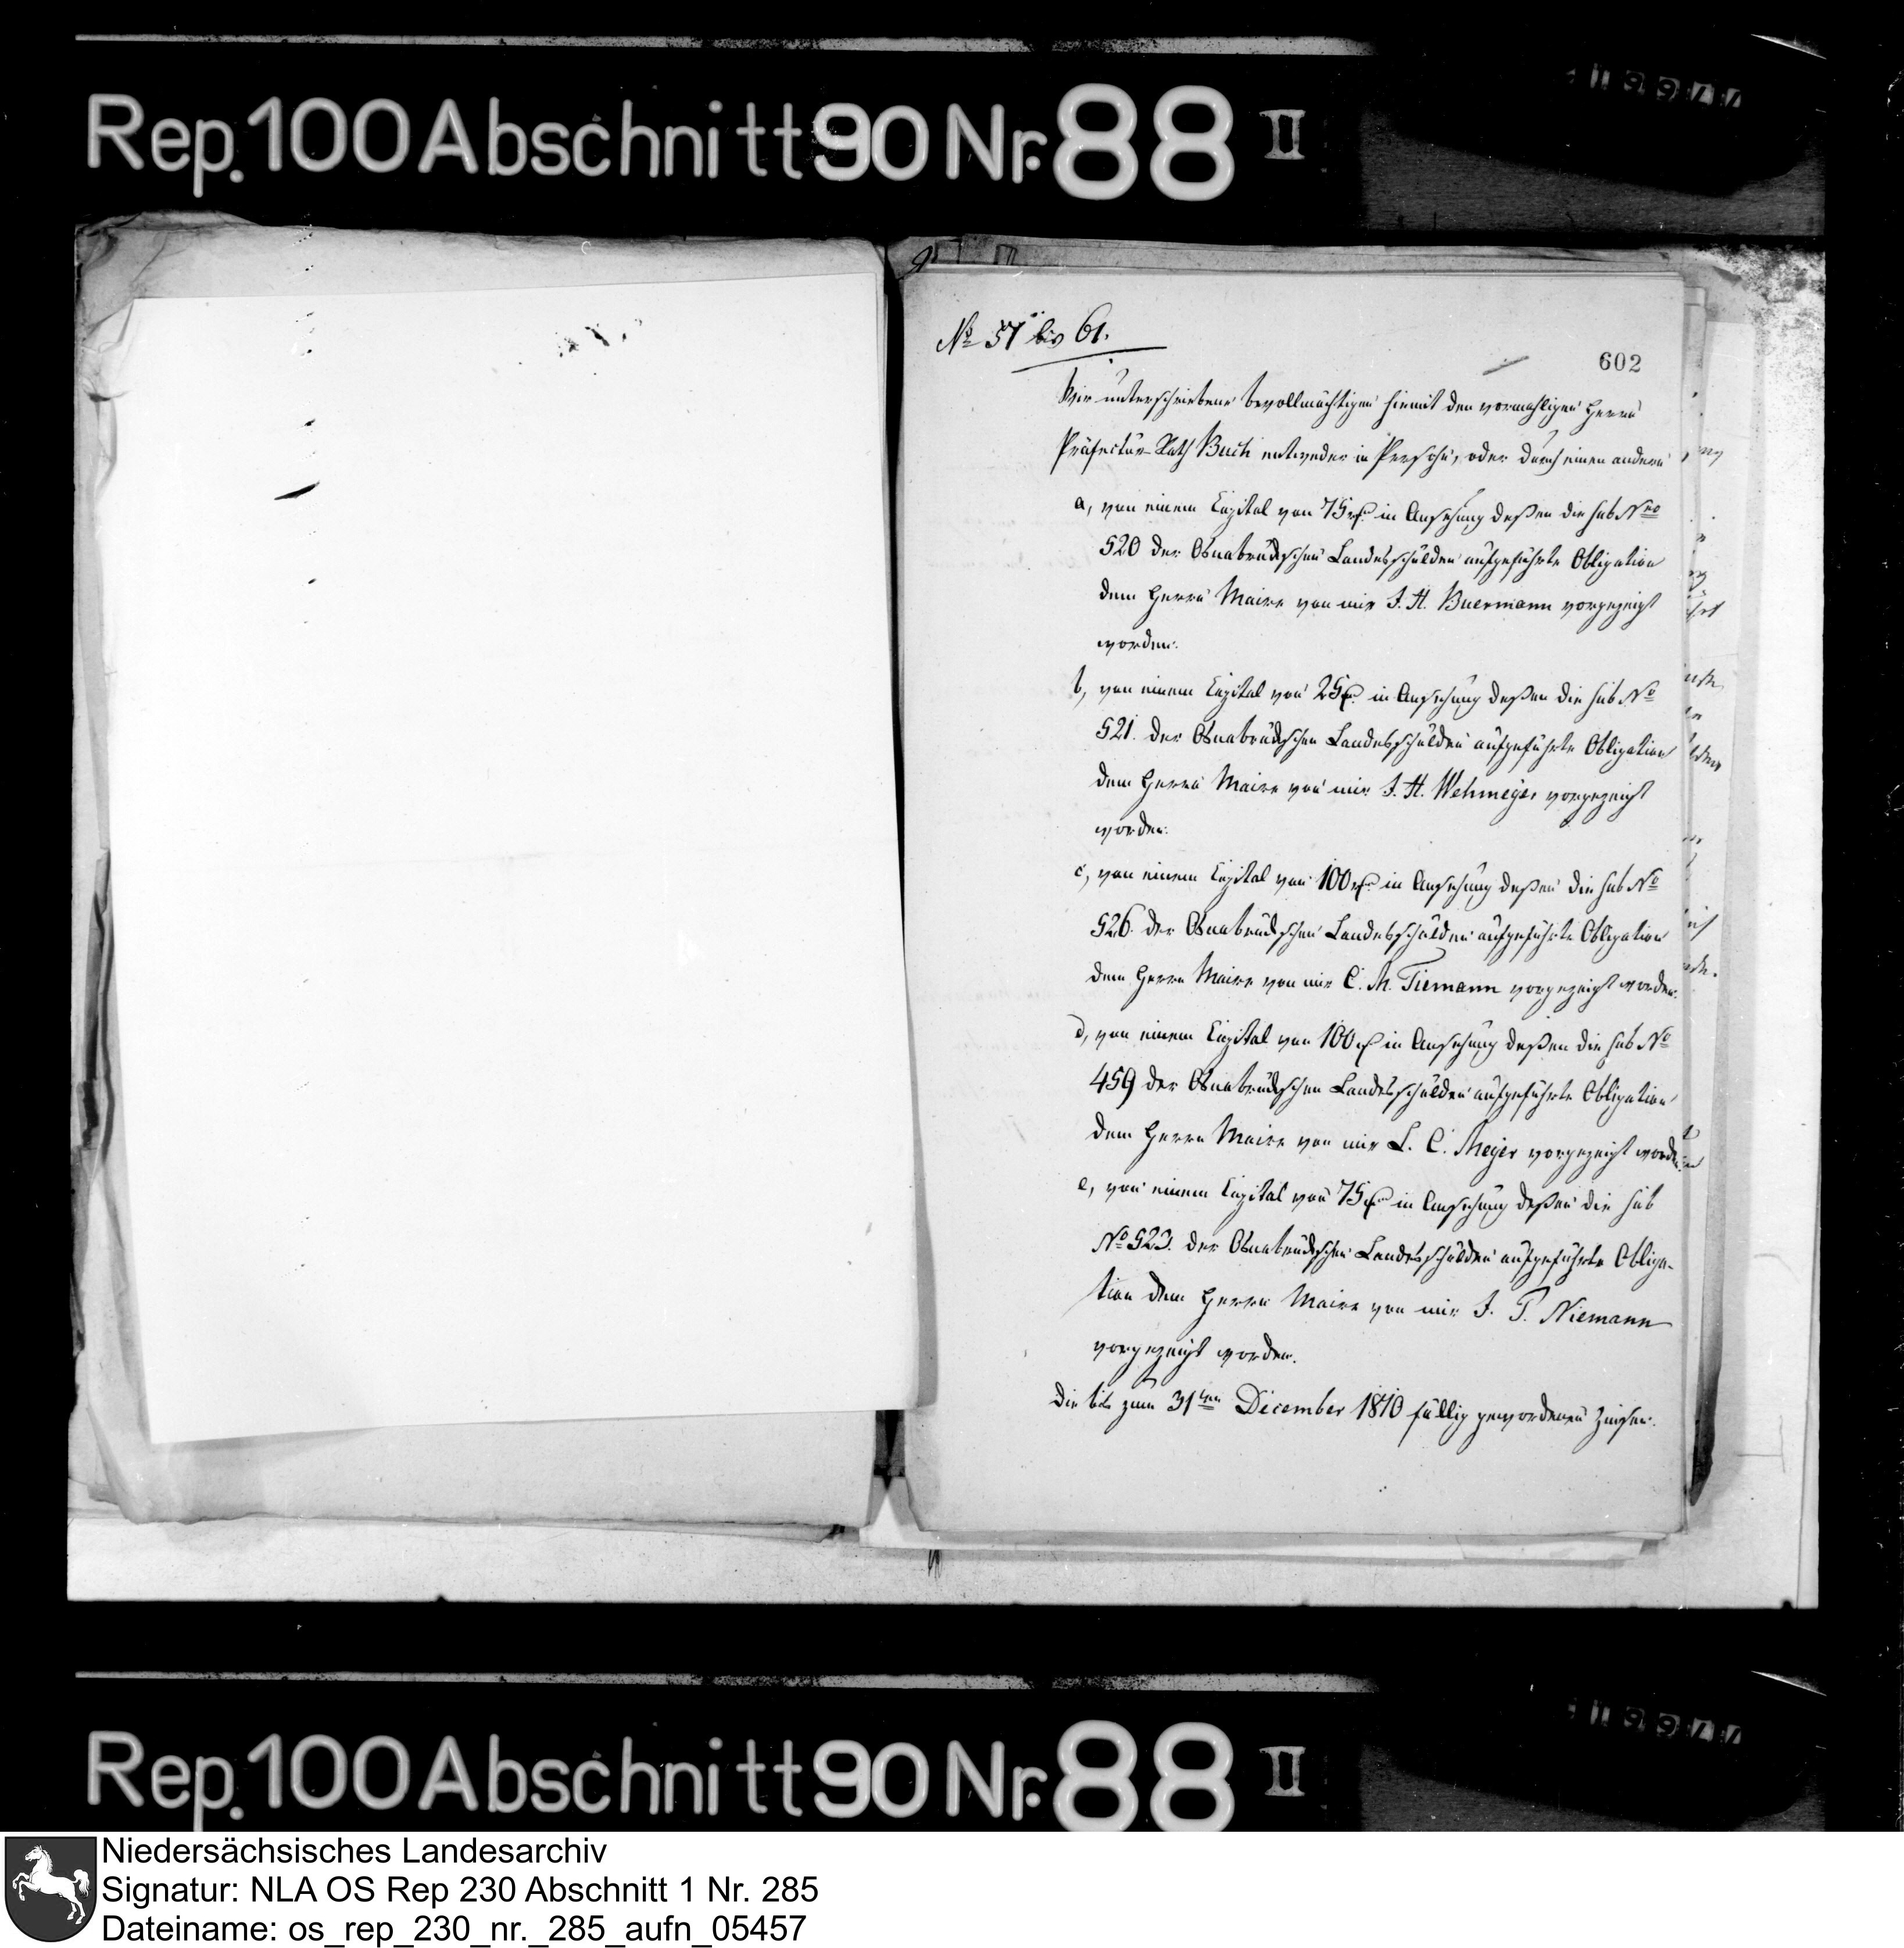 Rep. 100 Abschnitt 90 Nr. 88 II
No 57 bis 61.
602
Wir unterschriebene bevollmächtigen hiemit den vormahligen Herrn
Präfectur-Rath Buch entweder in Person, oder durch einen andern
a, von einem Capital von 75 rh in Ansehung deßen die sub Nro
520 der Osnabrückschen Landesschulden aufgeführte Obligation
dem Herrn Maire von mir J. H. Buermann vorgezeigt
worden.
b, von einem Capital von 25 rh in Ansehung deßen die sub No
521. der Osnabrückschen Landesschulden aufgeführte Obligation
dem Herrn Maire von mir J. H. Wehmeyer vorgezeigt
worden.
c, von einem Capital von 100 rh in Ansehung deßen die sub No
526. der Osnabrückschen Landesschulden aufgeführte Obligation
dem Herrn Maire von mir C. M. Tiemann vorgezeigt worden.
d, von einem Capital von 100 rh in Ansehung deßen die sub No
459 der Osnabrückschen Landesschulden aufgeführte Obligation
dem Herrn Maire von mir L. C. Meyer vorgezeigt worden.
e, von einem Capital von 75 rh in Ansehung deßen die sub
No 523. der Osnabrückschen Landesschulden aufgeführte Obliga-
tion dem Herrn Maire von mir J. P. Niemann
vorgezeigt worden.
die bis zum 31ten December 1810 fällig gewordenen Zinsen.
Rep. 100 Abschnitt 90 Nr. 88 II
Niedersächsisches Landesarchiv
Signatur: NLA OS Rep 230 Abschnitt 1 Nr. 285
Dateiname: os_rep_230_nr._285_aufn_05457